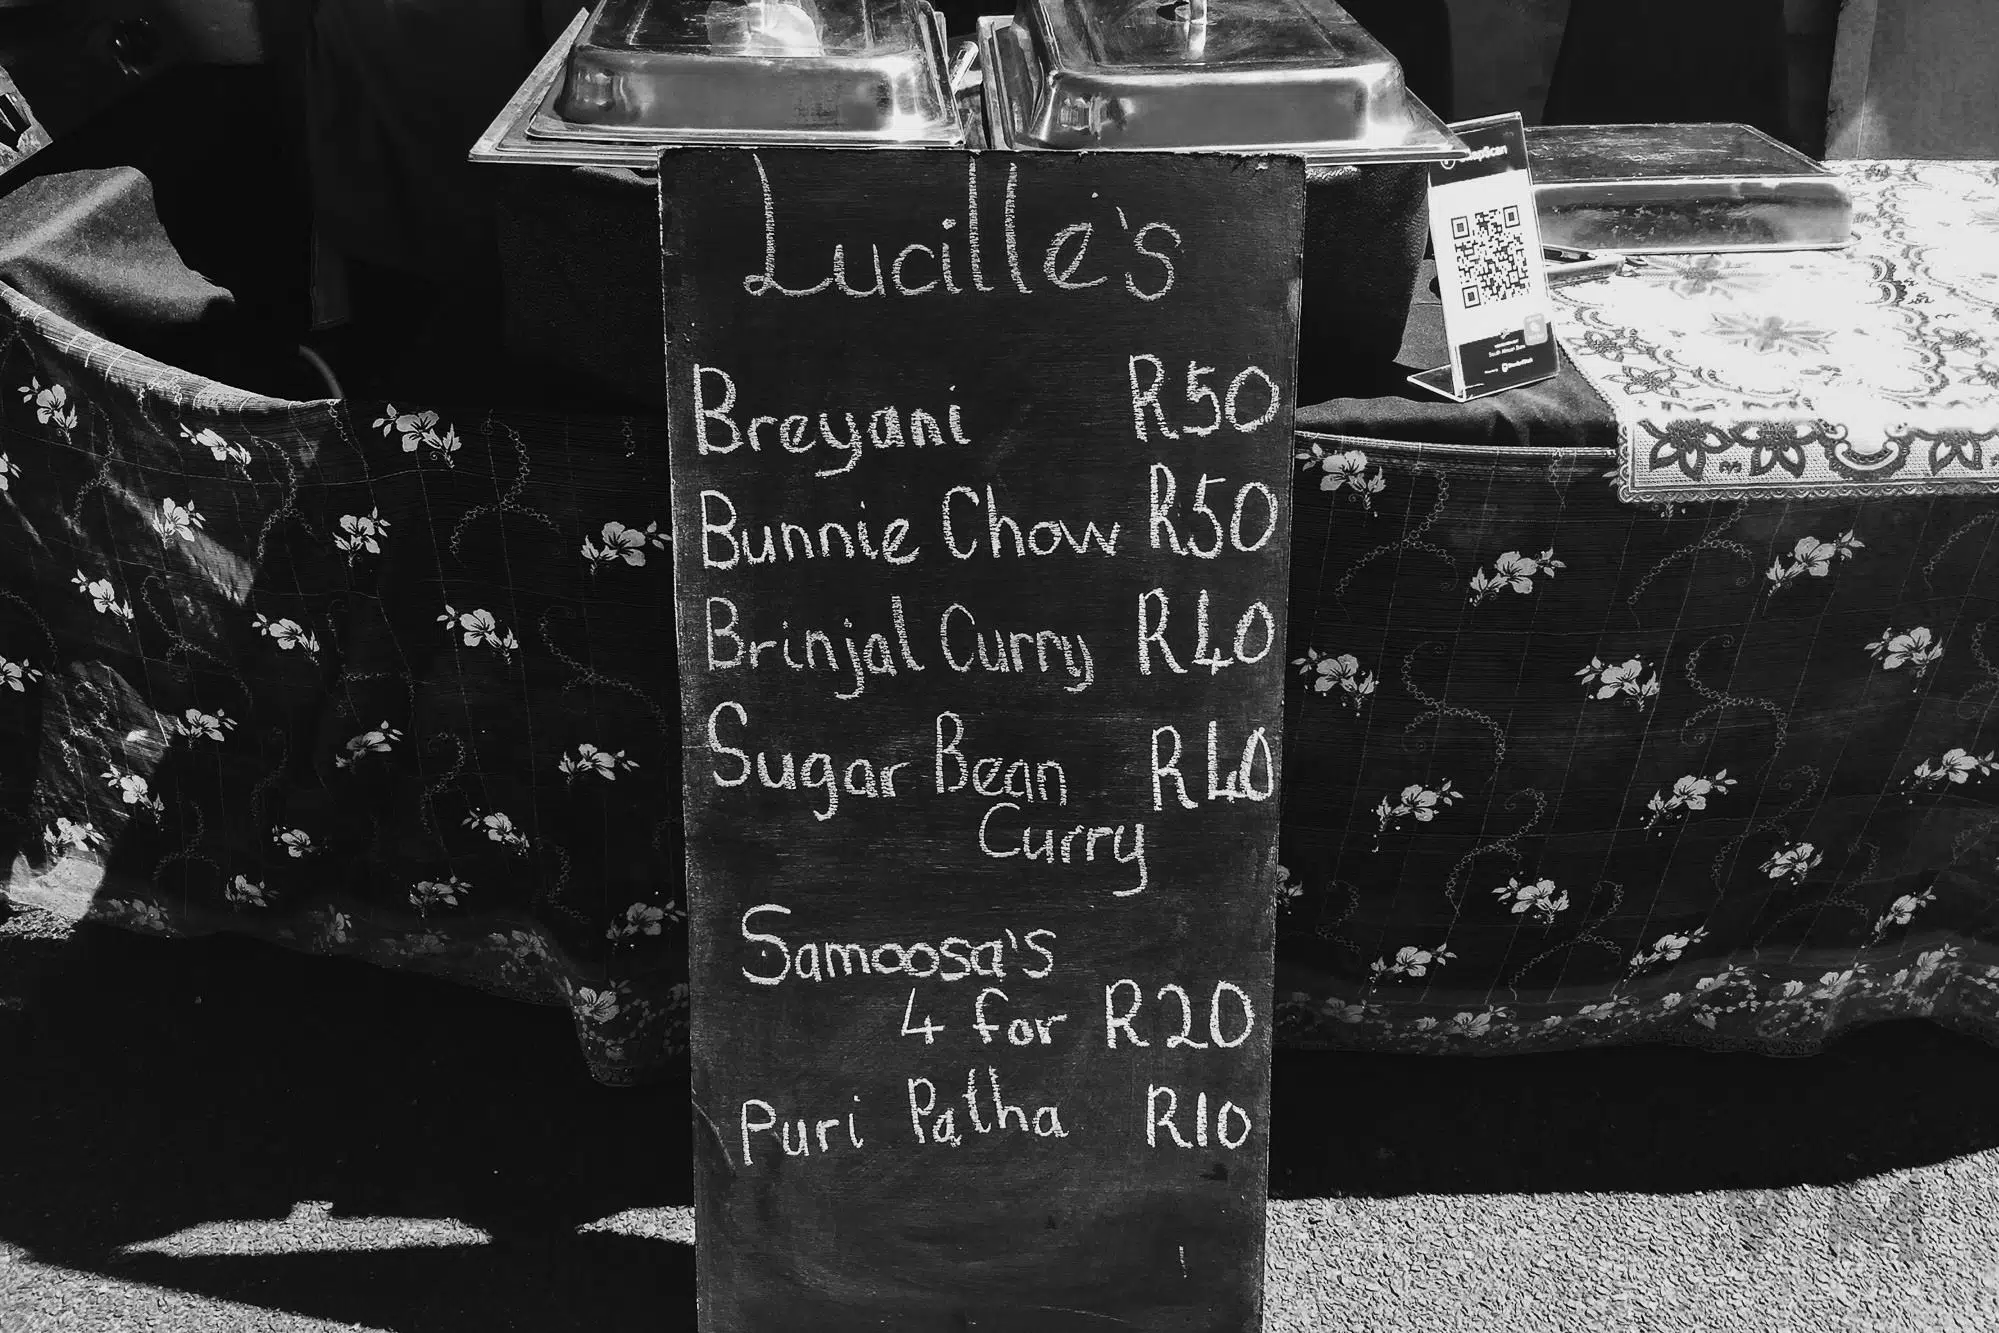 Lucille's
Breyani R50
Bunnie Chow R50
Brinjal Curry R40
Sugar Bean R40
Curry
Samoosa's
4 for R20
Puri Patha R10
SnapScan